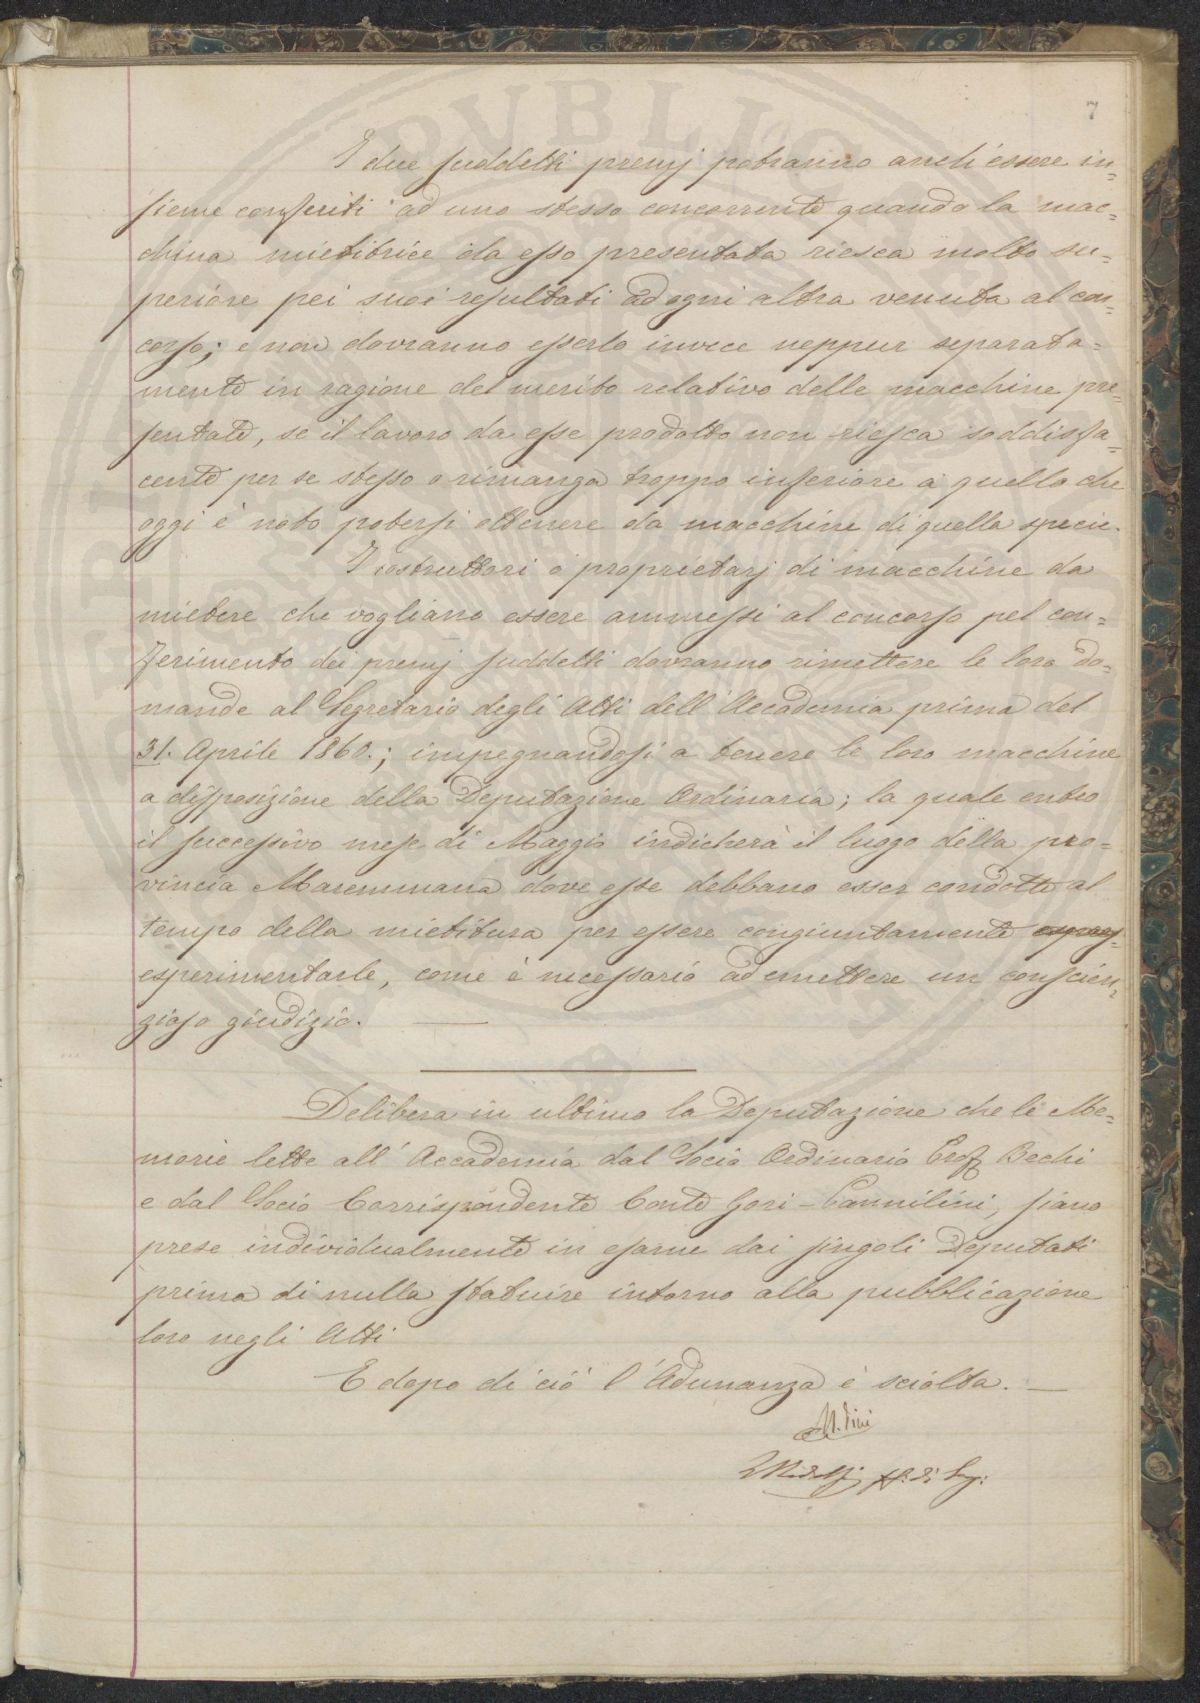 7
I due suddetti premj potranno anch'essere in-
sieme conferiti ad uno stesso concorrente quando la mac-
china mietitrice da esso presentata riesca molto su-
periore pei suoi resultati ad ogni altra venuta al con-
corso; e non dovranno esserlo invece neppur separata-
mente in ragione del merito relativo delle macchine pre-
sentate, se il lavoro da esse prodotto non riesca soddisfa-
cente per se stesso o rimanga troppo inferiore a quello che
oggi è noto potersi ottenere da macchine di quella specie.
I costruttori o proprietarj di macchine da
mietere che vogliano essere ammessi al concorso pel con-
ferimento dei premj suddetti dovranno rimettere le loro do-
mande al Segretario degli Atti dell'Accademia prima del
31. Aprile 1860.; impegnandosi a tenere le loro macchine
a disposizione della Deputazione Ordinaria; la quale entro
il successivo mese di Maggio indicherà il luogo della pro-
vincia Maremmana dove esse debbano esser condotte al
tempo della mietitura per essere congiuntamente
esperimentarle, come è necessario ad emettere un conscien-
zioso giudizio.
Delibera in ultimo la Deputazione che le Me-
morie lette all'Accademia dal Socio Ordinario Prof Bechi
e dal Socio Corrispondente Conte Gori-Pannilini, siano
prese individualmente in esame dai singoli Deputati
prima di nulla statuire intorno alla pubblicazione
loro negli Atti
E dopo di ciò l'Adunanza è sciolta.
PVBLIC